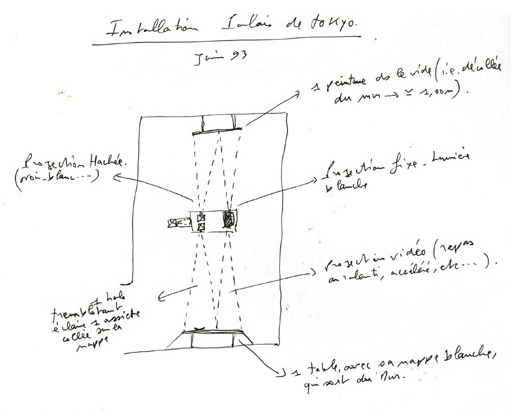 Installation Palais de tokyo.
Juin 93
1 peinture ds le vide (i.e. décollée
du mur → ≃ 1,00m).
Projection Hachée.
(noir-blanc...)
Projection fixe - Lumière
blanche
projection vidéo (repas
au ralenti, accéléré, etc...).
1 halo
tremblotant
éclaire 1 assiette
collée sur la
nappe
1 table, avec sa nappe blanche,
qui sort du Mur.